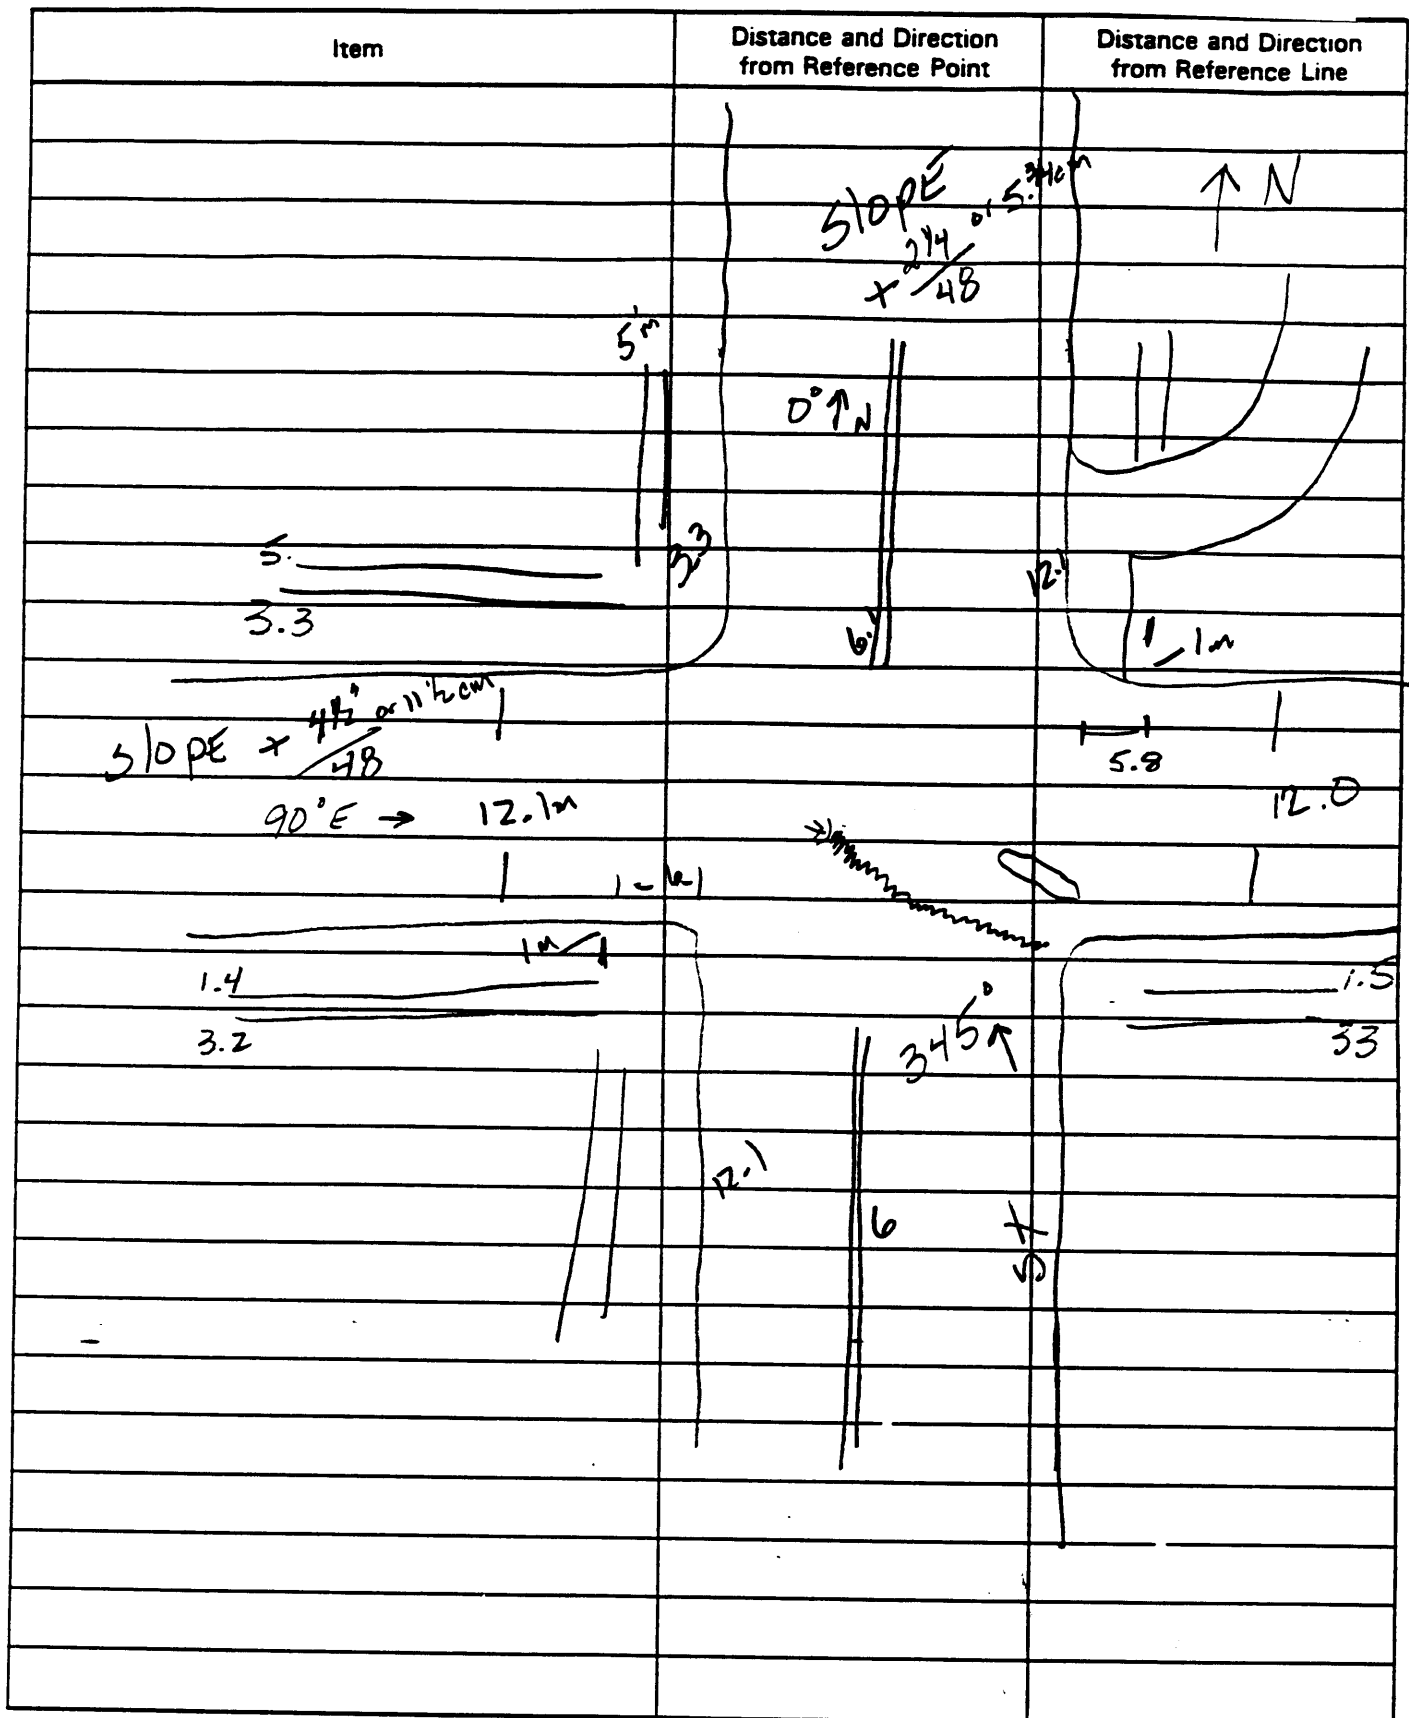 Item
Distance and Direction
from Reference Point
Distance and Direction
from Reference Line
↑ N
SLOPE
+ 2 1/4 / 48 or 5.3/4cm
5 m
0° ↑ N
3.3
5.
3.3
12.1
6.1
1m
SLOPE + 4 1/2" or 11 1/2 cm
/48
5.8
12.0
90° E → 12.1m
1m
1.4
1.5
3.2
345°
33
12.1
6